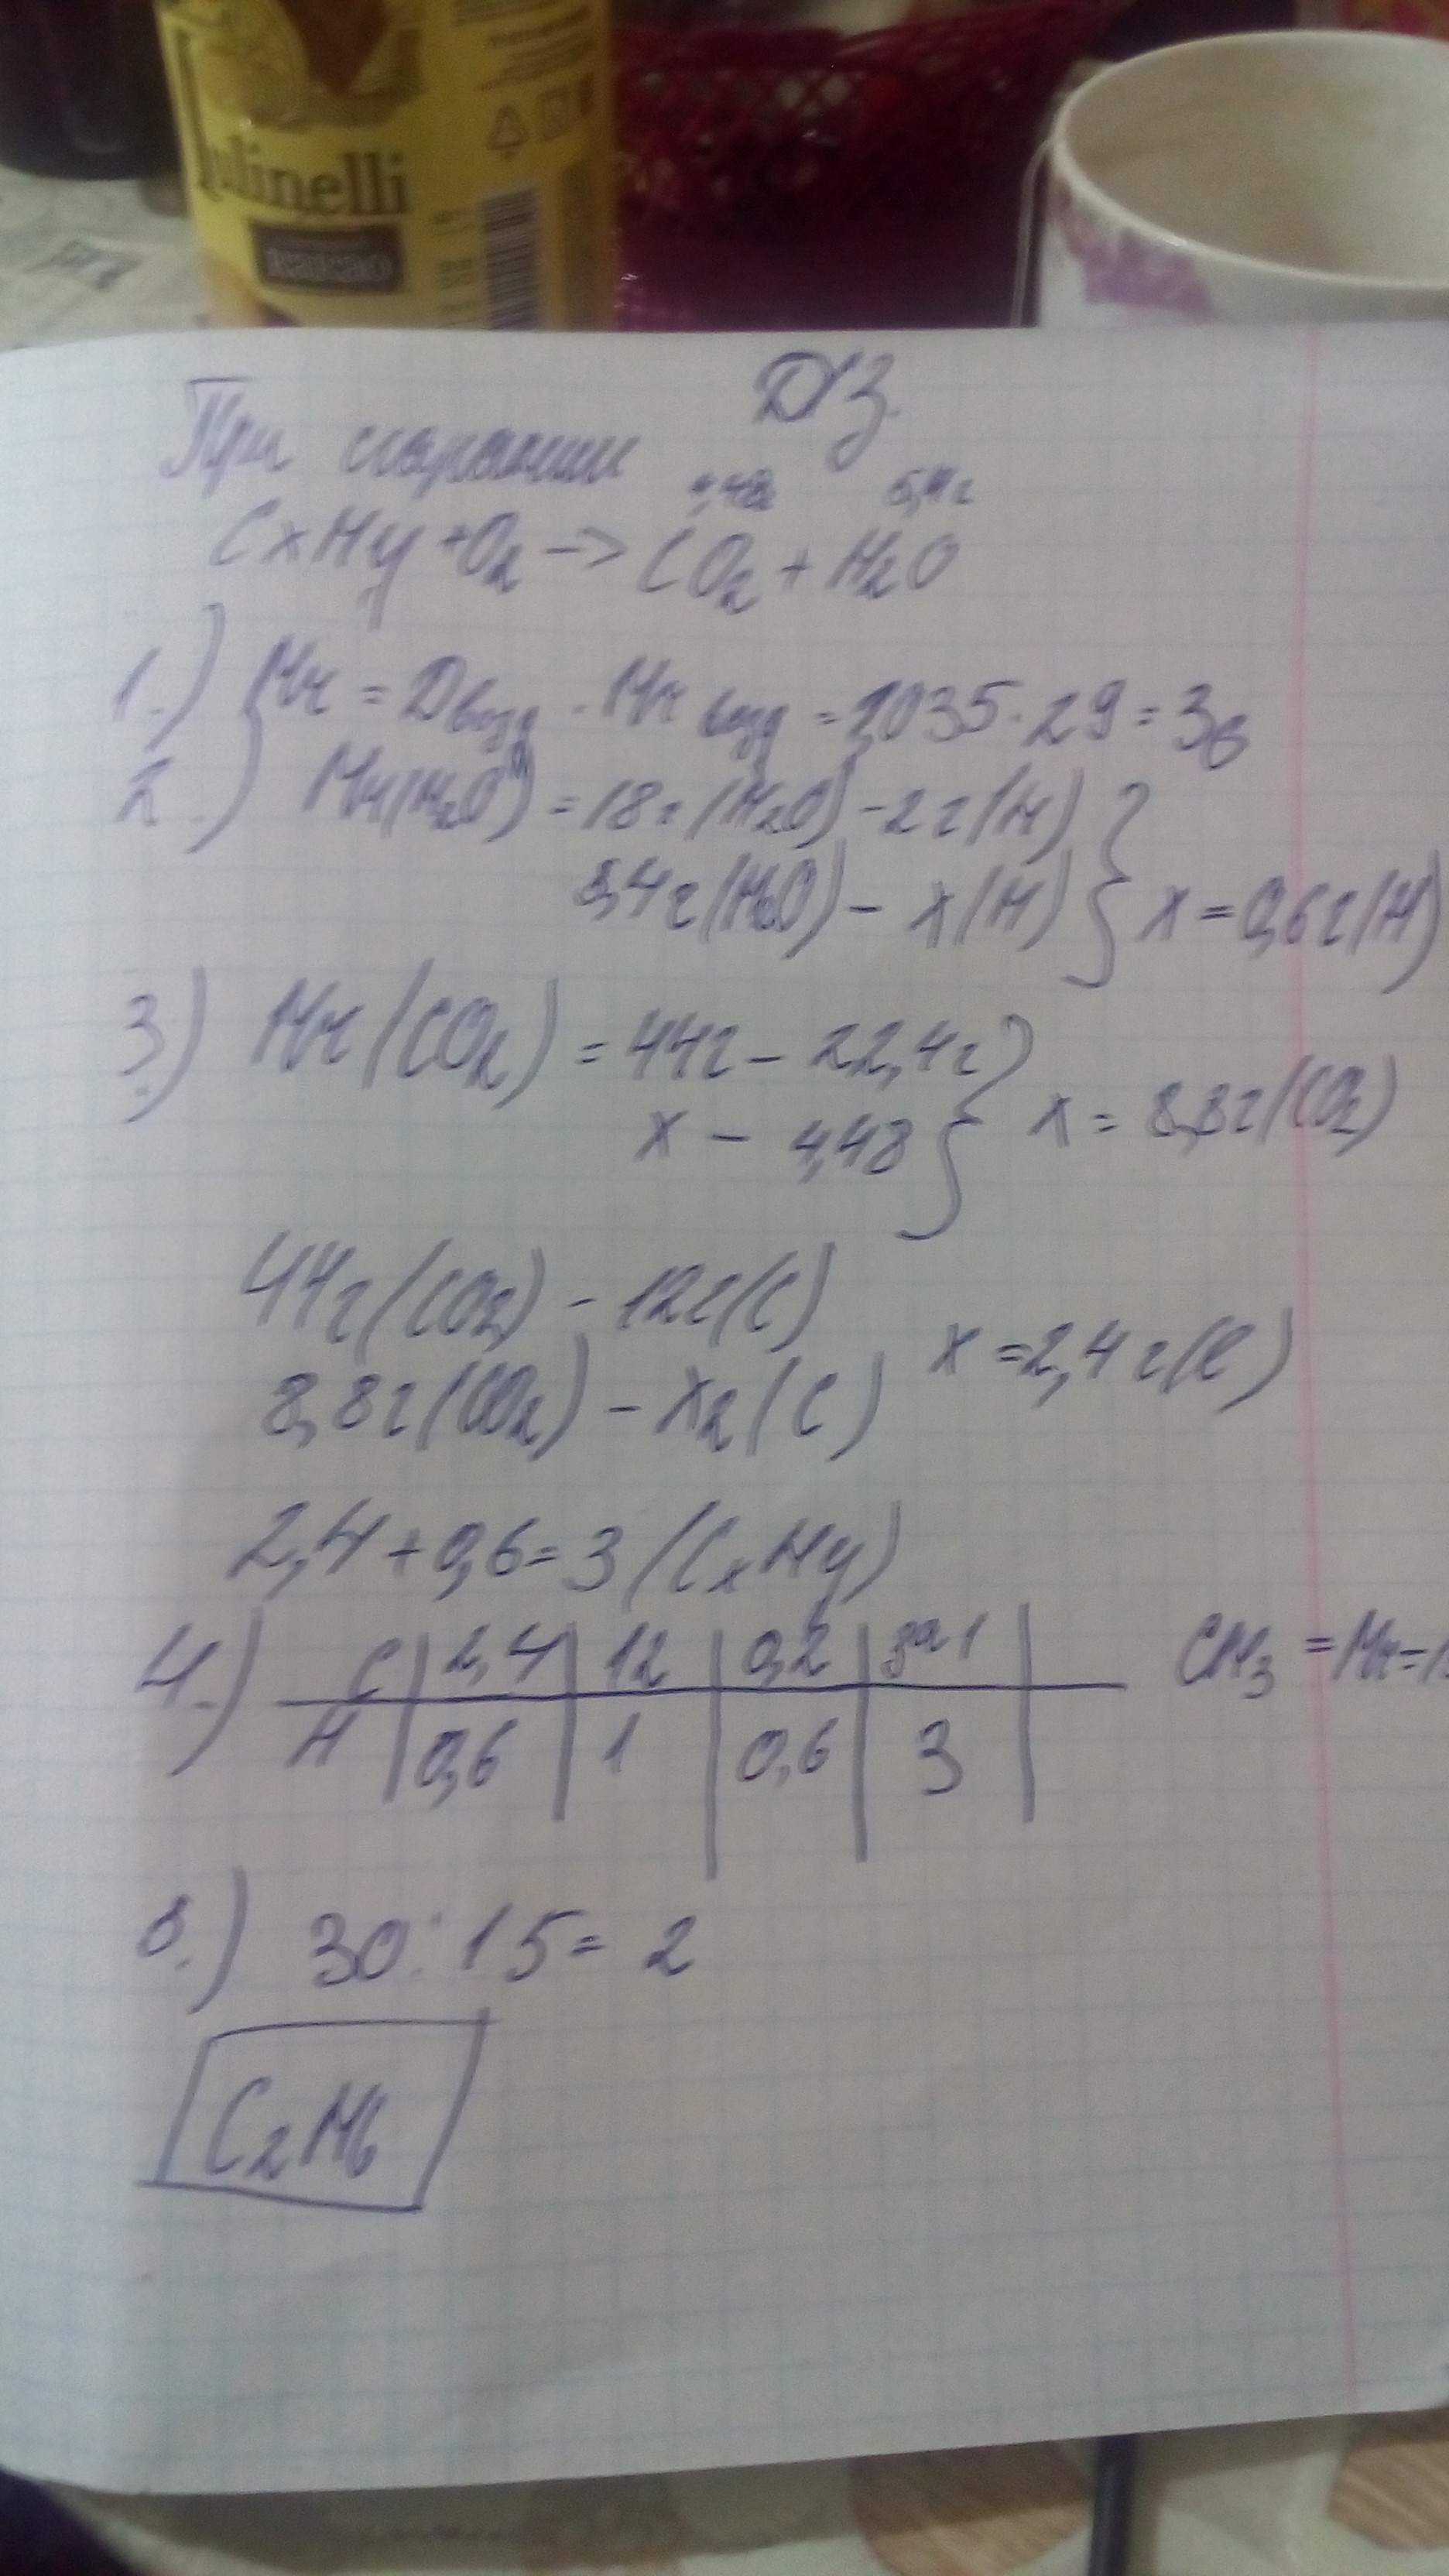 Julinelli
какао
ДЗ.
При сгорании
4,48 5,4г
CxHy + O2 -> CO2 + H2O
1.) Mr = Dвозд · Mr возд = 1,035 · 29 = 30
2.) Mr(H2O) = 18г(H2O) - 2г(H)
5,4г(H2O) - x(H) x = 0,6г(H)
3.) Mr(CO2) = 44г - 22,4г
x - 4,48 x = 8,8г(CO2)
44г(CO2) - 12г(C)
8,8г(CO2) - xг(C) x = 2,4г(C)
2,4 + 0,6 = 3 (CxHy)
4.) C | 2,4 | 12 | 0,2 | за 1 | CH3 = Mr = 1
H | 0,6 | 1 | 0,6 | 3 |
5.) 30 : 15 = 2
C2H6